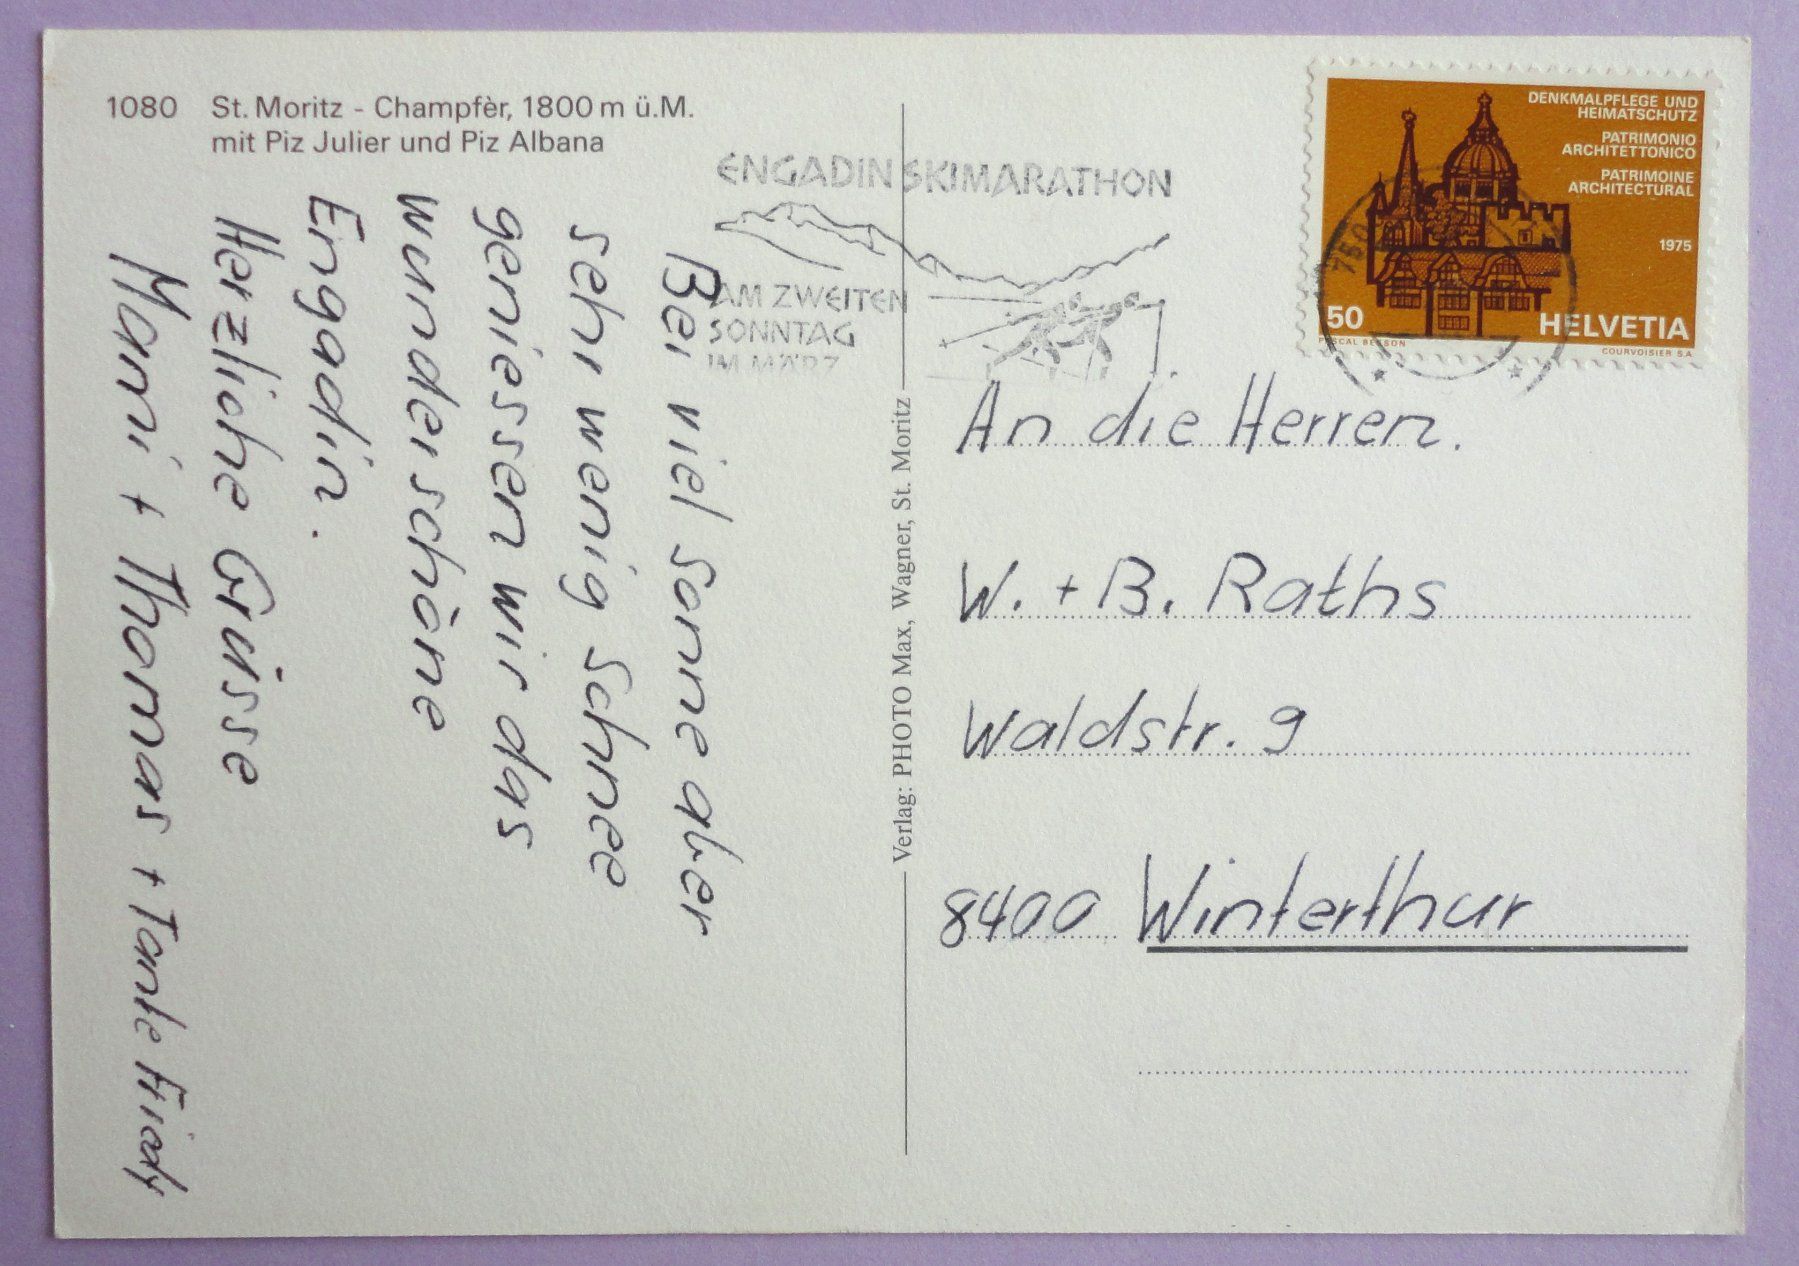 1080 St. Moritz - Champfèr, 1800 m ü.M.
mit Piz Julier und Piz Albana
ENGADIN SKIMARATHON
AM ZWEITEN
SONNTAG
IM MÄRZ
DENKMALPFLEGE UND
HEIMATSCHUTZ
PATRIMONIO
ARCHITETTONICO
PATRIMOINE
ARCHITECTURAL
1975
50
HELVETIA
PASCAL BESSON
COURVOISIER S.A.
Bei viel Sonne aber
sehr wenig Schnee
geniessen wir das
wunderschöne
Engadin.
Herzliche Grüsse
Mani + Thomas + Tante Friedy
Verlag: PHOTO Max, Wagner, St. Moritz
An die Herren.
W. + B. Raths
Waldstr. 9
8400 Winterthur